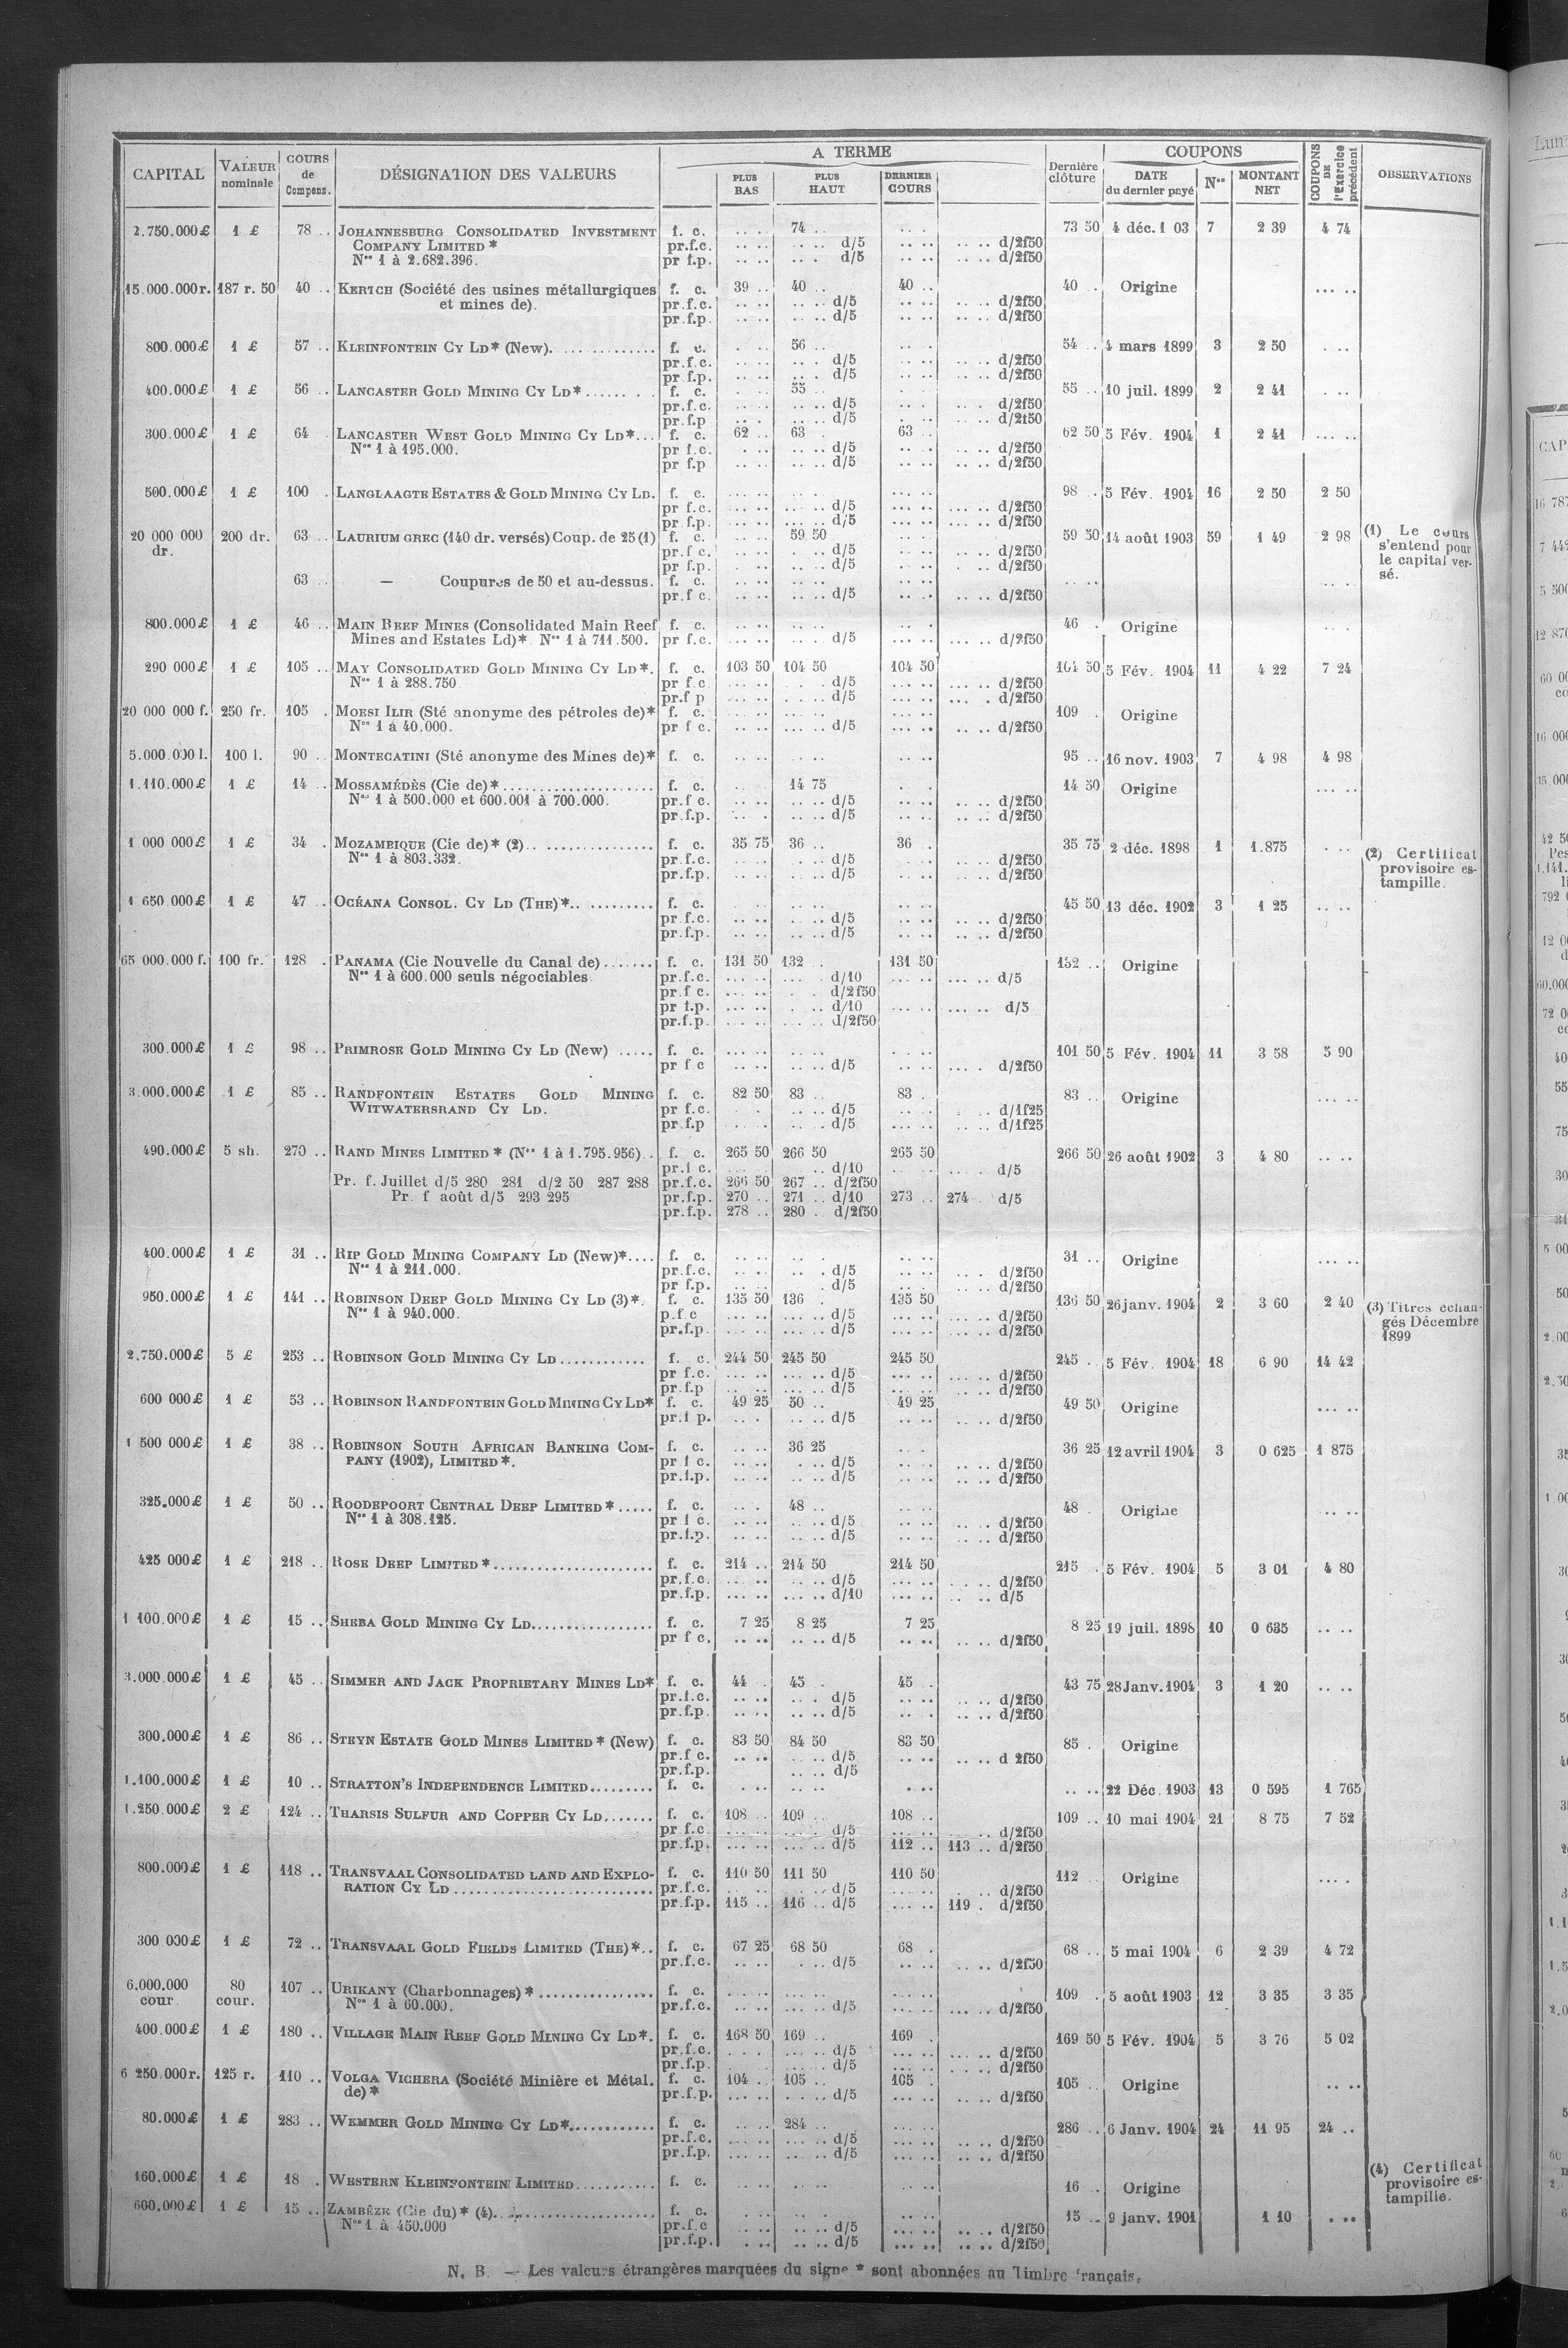 CAPITAL VALEUR nominale COURS de Compens. DÉSIGNATION DES VALEURS A TERME PLUS BAS PLUS HAUT DERNIER COURS Dernière clôture COUPONS DATE du dernier payé Nos MONTANT NET COUPONS DE l'Exercice précédent OBSERVATIONS
2.750.000£ 1 £ 78 .. JOHANNESBURG CONSOLIDATED INVESTMENT f. c. .. .. 74 .. .. .. 73 50 4 déc. 1 03 7 2 39 4 74
COMPANY LIMITED * pr.f.c. .. .. .. .. d/5 .. .. .. .. d/2f50
Nos 1 à 2.682.396. pr f.p. .. .. .. . d/5 .. .. .. .. d/2f50
15.000.000r. 187 r. 50 40 .. KERTCH (Société des usines métallurgiques f. c. 39 .. 40 .. 40 .. 40 .. Origine ... ..
et mines de). pr.f.c. .. .. .. .. d/5 .. .. .. .. d/2f50
pr.f.p. .. .. .. .. d/5 .. .. .. .. d/2f50
800.000£ 1 £ 57 .. KLEINFONTEIN CY LD* (New). .............. f. c. . .. 56 .. .. . 54 .. 4 mars 1899 3 2 50 . ..
pr.f.c. .. .. .. . d/5 .. .. .. .. d/2f50
pr f.p. .. .. .. . d/5 .. .. .. .. d/2f50
400.000£ 1 £ 56 .. LANCASTER GOLD MINING CY LD*....... . f. c. . .. 55 .. . .. 55 .. 10 juil. 1899 2 2 41 . ..
pr.f.c. . .. .. .. d/5 .. . .. . d/2f50
pr.f.p .. . .. .. d/5 . .. .. .. d/2f50
300.000£ 1 £ 64 LANCASTER WEST GOLD MINING CY LD*... f. c. 62 .. 63 . 63 .. 62 50 5 Fév. 1904 1 2 41 ... ..
Nos 1 à 195.000. pr f.c. . .. .. .. d/5 .. . .. .. d/2f50
pr f.p .. .. .. .. d/5 .. .. .. .. d/2f50
500.000£ 1 £ 100 . LANGLAAGTE ESTATES & GOLD MINING CY LD. f. c. ... .. .. . ... .. 98 .. 5 Fév. 1904 16 2 50 2 50
pr f.c. ... .. .. .. d/5 ... .. .. .. d/2f50
pr f.p. ... .. ... .. d/5 ... .. .. .. d/2f50
20 000 000 dr. 200 dr. 63 .. LAURIUM GREC (140 dr. versés) Coup. de 25 (1) f. c. .. .. 59 50 .. .. 59 50 14 août 1903 59 1 49 2 98 (1) Le cours
pr.f c. .. .. . .. d/5 .. .. .. .. d/2f50 s'entend pour
pr f.p. .. .. .. .. d/5 .. .. . .. d/2f50 le capital ver-
63 .. — Coupures de 50 et au-dessus. f. c. .. .. .. .. .. .. .. .. .. .. sé.
pr.f c. .. .. .. .. d/5 .. . .. .. d/2f50
800.000£ 1 £ 46 .. MAIN REEF MINES (Consolidated Main Reef f. c. .. .. .. .. .. . 46 . Origine .. .
Mines and Estates Ld)*. Nos 1 à 711.500. pr f.c. ... .. .. .. d/5 ... .. ... .. d/2f50
290 000£ 1 £ 105 .. MAY CONSOLIDATED GOLD MINING CY LD*. f. c. 103 50 104 50 104 50 104 50 5 Fév. 1904 11 4 22 7 24
Nos 1 à 288.750 pr f.c. ... .. . . d/5 ... .. ... .. d/2f50
pr.f p ... .. . .. d/5 ... .. ... . d/2f50
20 000 000 f. 250 fr. 105 . MOESI ILIR (Sté anonyme des pétroles de)* f. c. ... .. ... .. ... .. 109 . Origine
Nos 1 à 40.000. pr f c. ... .. ... .. d/5 ... .. ... .. d/2f50
5.000.000 l. 100 l. 90 .. MONTECATINI (Sté anonyme des Mines de)* f. c. ... .. .. .. .. .. 95 .. 16 nov. 1903 7 4 98 4 98
1.110.000£ 1 £ 14 .. MOSSAMÉDÈS (Cie de)*..................... f. c. . . 14 75 . . 14 50 Origine ... ..
Nos 1 à 500.000 et 600.001 à 700.000. pr.f c. .. .. .. .. d/5 .. .. .. .. d/2f50
pr.f.p. .. . .. .. d/5 .. .. .. .. d/2f50
1 000 000£ 1 £ 34 . MOZAMBIQUE (Cie de)* (2).. ............... f. c. 35 75 36 .. 36 .. 35 75 2 déc. 1898 1 1.875 . .. (2) Certificat
Nos 1 à 803.332. pr.f.c. .. . . .. d/5 .. . .. .. d/2f50 provisoire es-
pr.f.p. .. .. . .. d/5 .. .. .. .. d/2f50 tampille.
1 650 000£ 1 £ 47 .. OCÉANA CONSOL. CY LD (THE)*.. ......... f. c. . .. .. .. .. .. 45 50 13 déc. 1902 3 1 25 .. ..
pr f.c. .. .. . .. d/5 .. .. .. .. d/2f50
pr.f.p. .. .. .. .. d/5 .. .. .. .. d/2f50
65 000.000 f. 100 fr. 128 . PANAMA (Cie Nouvelle du Canal de)....... f. c. 131 50 132 . 131 50 132 .. Origine
Nos 1 à 600.000 seuls négociables. pr.f.c. ... .. ... . d/10 ... .. ... .. d/5
pr.f c. ... .. . . d/2f50
pr f.p. ... .. . .. d/10 ... .. ... .. d/5
pr.f.p. ... .. ... .. d/2f50
300.000£ 1 £ 98 .. PRIMROSE GOLD MINING CY LD (New) ..... f. c. ... .. .. .. . .. 101 50 5 Fév. 1904 11 3 58 5 90
pr f c ... .. .. .. d/5 .. .. ... . d/2f50
3.000.000£ 1 £ 85 .. RANDFONTEIN ESTATES GOLD MINING f. c. 82 50 83 .. 83 . 83 .. Origine ... ..
WITWATERSRAND CY LD. pr f.c. . . .. .. d/5 .. . . .. d/1f25
pr.f.p . . .. .. d/5 ... .. .. .. d/1f25
490.000£ 5 sh. 270 .. RAND MINES LIMITED * (Nos 1 à 1.795.956).. f. c. 265 50 266 50 265 50 266 50 26 août 1902 3 4 80 .. ..
pr.f c. ... . .. d/10 .. . ... . d/5
Pr. f. Juillet d/5 280 281 d/2 50 287 288 pr.f.c. 266 50 267 .. d/2f50
Pr. f août d/5 293 295 pr.f.p. 270 .. 271 .. d/10 273 .. 274 . d/5
pr.f.p. 278 .. 280 . d/2f50
400.000£ 1 £ 31 .. RIP GOLD MINING COMPANY LD (New)*.... f. c. .. .. .. . .. .. 31 .. Origine ... ..
Nos 1 à 211.000. pr.f.c. .. .. .. . d/5 .. .. .. . d/2f50
pr f.p. .. .. . d/5 .. .. .. .. d/2f50
950.000£ 1 £ 141 .. ROBINSON DEEP GOLD MINING CY LD (3)*. f. c. 135 50 136 . 135 50 136 50 26 janv. 1904 2 3 60 2 40 (3) Titres échan-
Nos 1 à 940.000. p.f.c ... .. ... .. d/5 ... .. ... .. d/2f50 gés Décembre
pr.f.p. ... .. ... .. d/5 ... .. ... .. d/2f50 1899
2,750.000£ 5 £ 253 .. ROBINSON GOLD MINING CY LD............ f. c. 244 50 245 50 245 50 245 .. 5 Fév. 1904 18 6 90 14 42
pr f.c. ... .. ... .. d/5 ... .. ... .. d/2f50
pr.f.p .. .. ... .. d/5 ... .. .. .. d/2f50
600 000£ 1 £ 53 .. ROBINSON RANDFONTEIN GOLD MINING CY LD* f. c. 49 25 50 .. 49 25 49 50 Origine ... ..
pr.f p. .. . .. .. d/5 .. .. .. .. d/2f50
1 500 000£ 1 £ 38 .. ROBINSON SOUTH AFRICAN BANKING COM- f. c. .. .. 36 25 .. . 36 25 12 avril 1904 3 0 625 1 875
PANY (1902), LIMITED *. pr f c. .. .. . .. d/5 .. .. .. .. d/2f50
pr.f.p. .. .. .. .. d/5 .. .. .. .. d/2f50
325.000£ 1 £ 50 .. ROODEPOORT CENTRAL DEEP LIMITED *..... f. c. .. . 48 .. .. .. 48 . Origine .. ..
Nos 1 à 308.125. pr f c. .. .. .. .. d/5 .. .. .. .. d/2f50
pr.f.p. .. .. .. .. d/5 .. .. .. .. d/2f50
425 000£ 1 £ 218 .. ROSE DEEP LIMITED *...................... f. c. 214 .. 214 50 214 50 215 . 5 Fév. 1904 5 3 01 4 80
pr.f.c. ... .. .. .. d/5 ... .. .. .. d/2f50
pr.f.p. ... .. ... .. d/10 ... .. .. .. d/5
1 100.000£ 1 £ 15 .. SHEBA GOLD MINING CY LD................. f. c. 7 25 8 25 7 25 8 25 19 juil. 1898 10 0 635 .. ..
pr f c. .. .. .. .. d/5 .. .. .. .. d/2f50
3.000.000£ 1 £ 45 .. SIMMER AND JACK PROPRIETARY MINES LD* f. c. 44 . 45 . 45 .. 43 75 28 Janv. 1904 3 1 20 .. ..
pr.f.c. .. .. .. . d/5 .. .. .. .. d/2f50
pr.f.p. .. .. .. .. d/5 .. . .. .. d/2f50
300.000£ 1 £ 86 .. STEYN ESTATE GOLD MINES LIMITED * (New) f. c. 83 50 84 50 83 50 85 . Origine
pr.f c. .. .. .. .. d/5 .. .. .. .. d 2f50
pr.f.p. .. .. d/5
1.100.000£ 1 £ 10 .. STRATTON'S INDEPENDENCE LIMITED......... f. c. . .. .. .. . .. .. .. 22 Déc. 1903 13 0 595 1 765
1.250.000£ 2 £ 124 .. THARSIS SULFUR AND COPPER CY LD....... f. c. 108 .. 109 .. 108 .. 109 .. 10 mai 1904 21 8 75 7 52
pr f.c ... .. ... . d/5 ... .. ... .. d/2f50
pr.f.p. ... .. ... .. d/5 112 .. 113 .. d/2f50
800.000£ 1 £ 118 .. TRANSVAAL CONSOLIDATED LAND AND EXPLO- f. c. 110 50 111 50 110 50 112 .. Origine ... .
RATION CY LD ........................... pr.f.c. .. .. ... .. d/5 ... .. . .. d/2f50
pr.f.p. 115 .. 116 .. d/5 ... .. 119 . d/2f50
300 000£ 1 £ 72 .. TRANSVAAL GOLD FIELDS LIMITED (THE)*.. f. c. 67 25 68 50 68 . 68 .. 5 mai 1904 6 2 39 4 72
pr.f.c. .. .. . .. d/5 .. .. .. .. d/2f50
6.000.000 cour. 80 cour. 107 .. URIKANY (Charbonnages) *................ f. c. ... .. ... .. ... .. 109 . 5 août 1903 12 3 35 3 35
Nos 1 à 60.000. pr.f.c. ... .. ... .. d/5 ... .. ... .. d/2f50
400.000£ 1 £ 180 .. VILLAGE MAIN REEF GOLD MINING CY LD*. f. c. 168 50 169 .. 169 . 169 50 5 Fév. 1904 5 3 76 5 02
pr.f.c. . . . ... .. d/5 ... .. .. .. d/2f50
pr.f.p. . .. ... .. d/5 ... .. .. .. d/2f50
6 250.000r. 125 r. 110 .. VOLGA VICHERA (Société Minière et Métal. f. c. 104 .. 105 .. 105 . 105 .. Origine .. ..
de) * pr.f.p. ... .. ... .. d/5 ... .. .. .. d/2f50
80.000£ 1 £ 283 .. WEMMER GOLD MINING CY LD*............ f. c. .. .. 284 .. ... .. 286 .. 6 Janv. 1904 24 11 95 24 ..
pr.f.c. ... .. ... .. d/5 ... .. .. .. d/2f50
pr.f.p. ... .. ... .. d/5 ... .. .. .. d/2f50
160.000£ 1 £ 18 . WESTERN KLEINFONTEIN LIMITED........... f. c. . .. .. .. .. .. 16 .. Origine (4) Certificat
600,000£ 1 £ 15 .. ZAMBÈZE (Cie du)* (4)..................... f. c. . .. .. . .. .. 15 .. 9 janv. 1901 1 10 . .. provisoire es-
Nos 1 à 450.000 pr.f.c .. .. .. .. d/5 ... .. .. .. d/2f50 tampille.
pr.f.p. . .. .. .. d/5 ... .. .. .. d/2f50
N. B. — Les valeurs étrangères marquées du signe * sont abonnées au Timbre français.